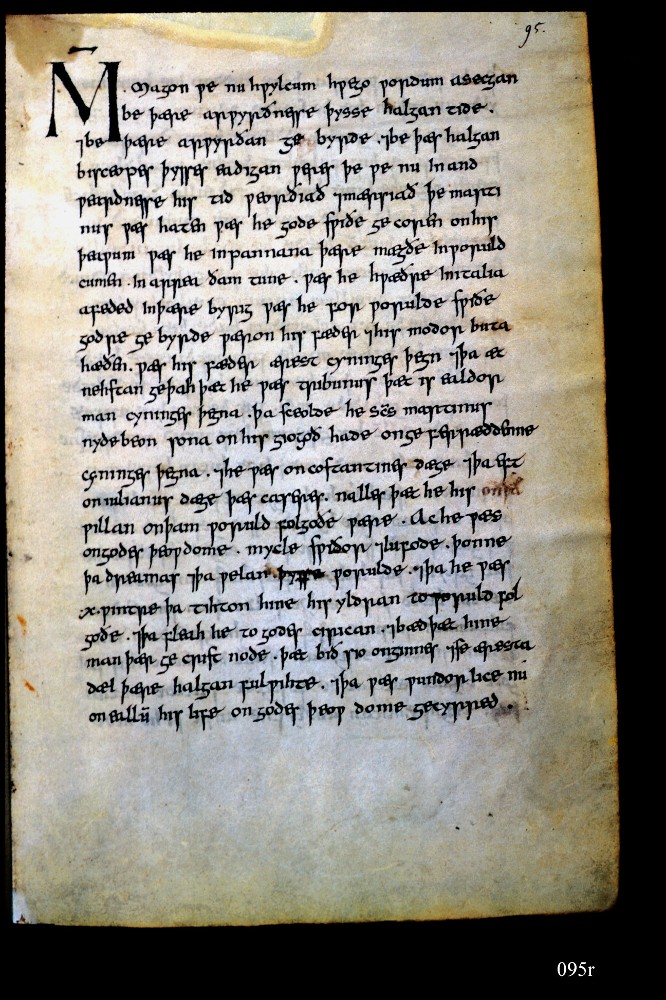 95.
M̄. Magon ƿe nu hƿylcum hƿego ƿordum asecgan
be þære arƿyrðnesse þysse halgan tide.
⁊be þære arƿyrðan ge byrde. ⁊be þæs halgan
bisceopes þysses eadigan ƿeres þe ƿe nu In and
ƿeardnesse his tid ƿeorðiað ⁊mærsiað þe marti
nus ƿæs haten ƿæs he gode sƿiðe ge coren on his
þeaƿum ƿæs he In pannania þære mægðe In ƿoruld
cumen. In arrea ðam tune. ƿæs he hƿæðre In italia
afeded In þære byrig ƿæs he for ƿorulde sƿiðe
godre ge byrde ƿæron his fæder ⁊his modor buta
hæðen. ƿæs his fæder ærest cyninges þegn ⁊þa æt
nehstan geþah þæt he ƿæs tribunus þæt is ealdor
man cyninges þegna. þa sceolde he scs̄ martinus
nyde beon sona on his giogoð hade on ge ferræddenne
cyninges þegna. ⁊he ƿæs on costantines dæge ⁊þa eft
on iulianus dæge þæs caseres. nalles þæt he his
ƿillan on þam ƿoruld folgoðe ƿære. Ac he ƿæs
on godes þeoƿdome. mycle sƿiðor ⁊lufode. þonne
þa dreamas ⁊þa ƿelan þysse ƿorulde. ⁊þa he ƿæs
.x. ƿintre þa tihton hine his yldran to ƿoruld fol
goðe. ⁊þa fleah he to godes cirican. ⁊bæd þæt hine
man þær ge crist node. þæt bið sio onginnes ⁊se æresta
dæl þære halgan fulƿihte. ⁊þa ƿæs ƿundor lice nu
on eallū his life on godes þeoƿ dome gecyrred.
095r